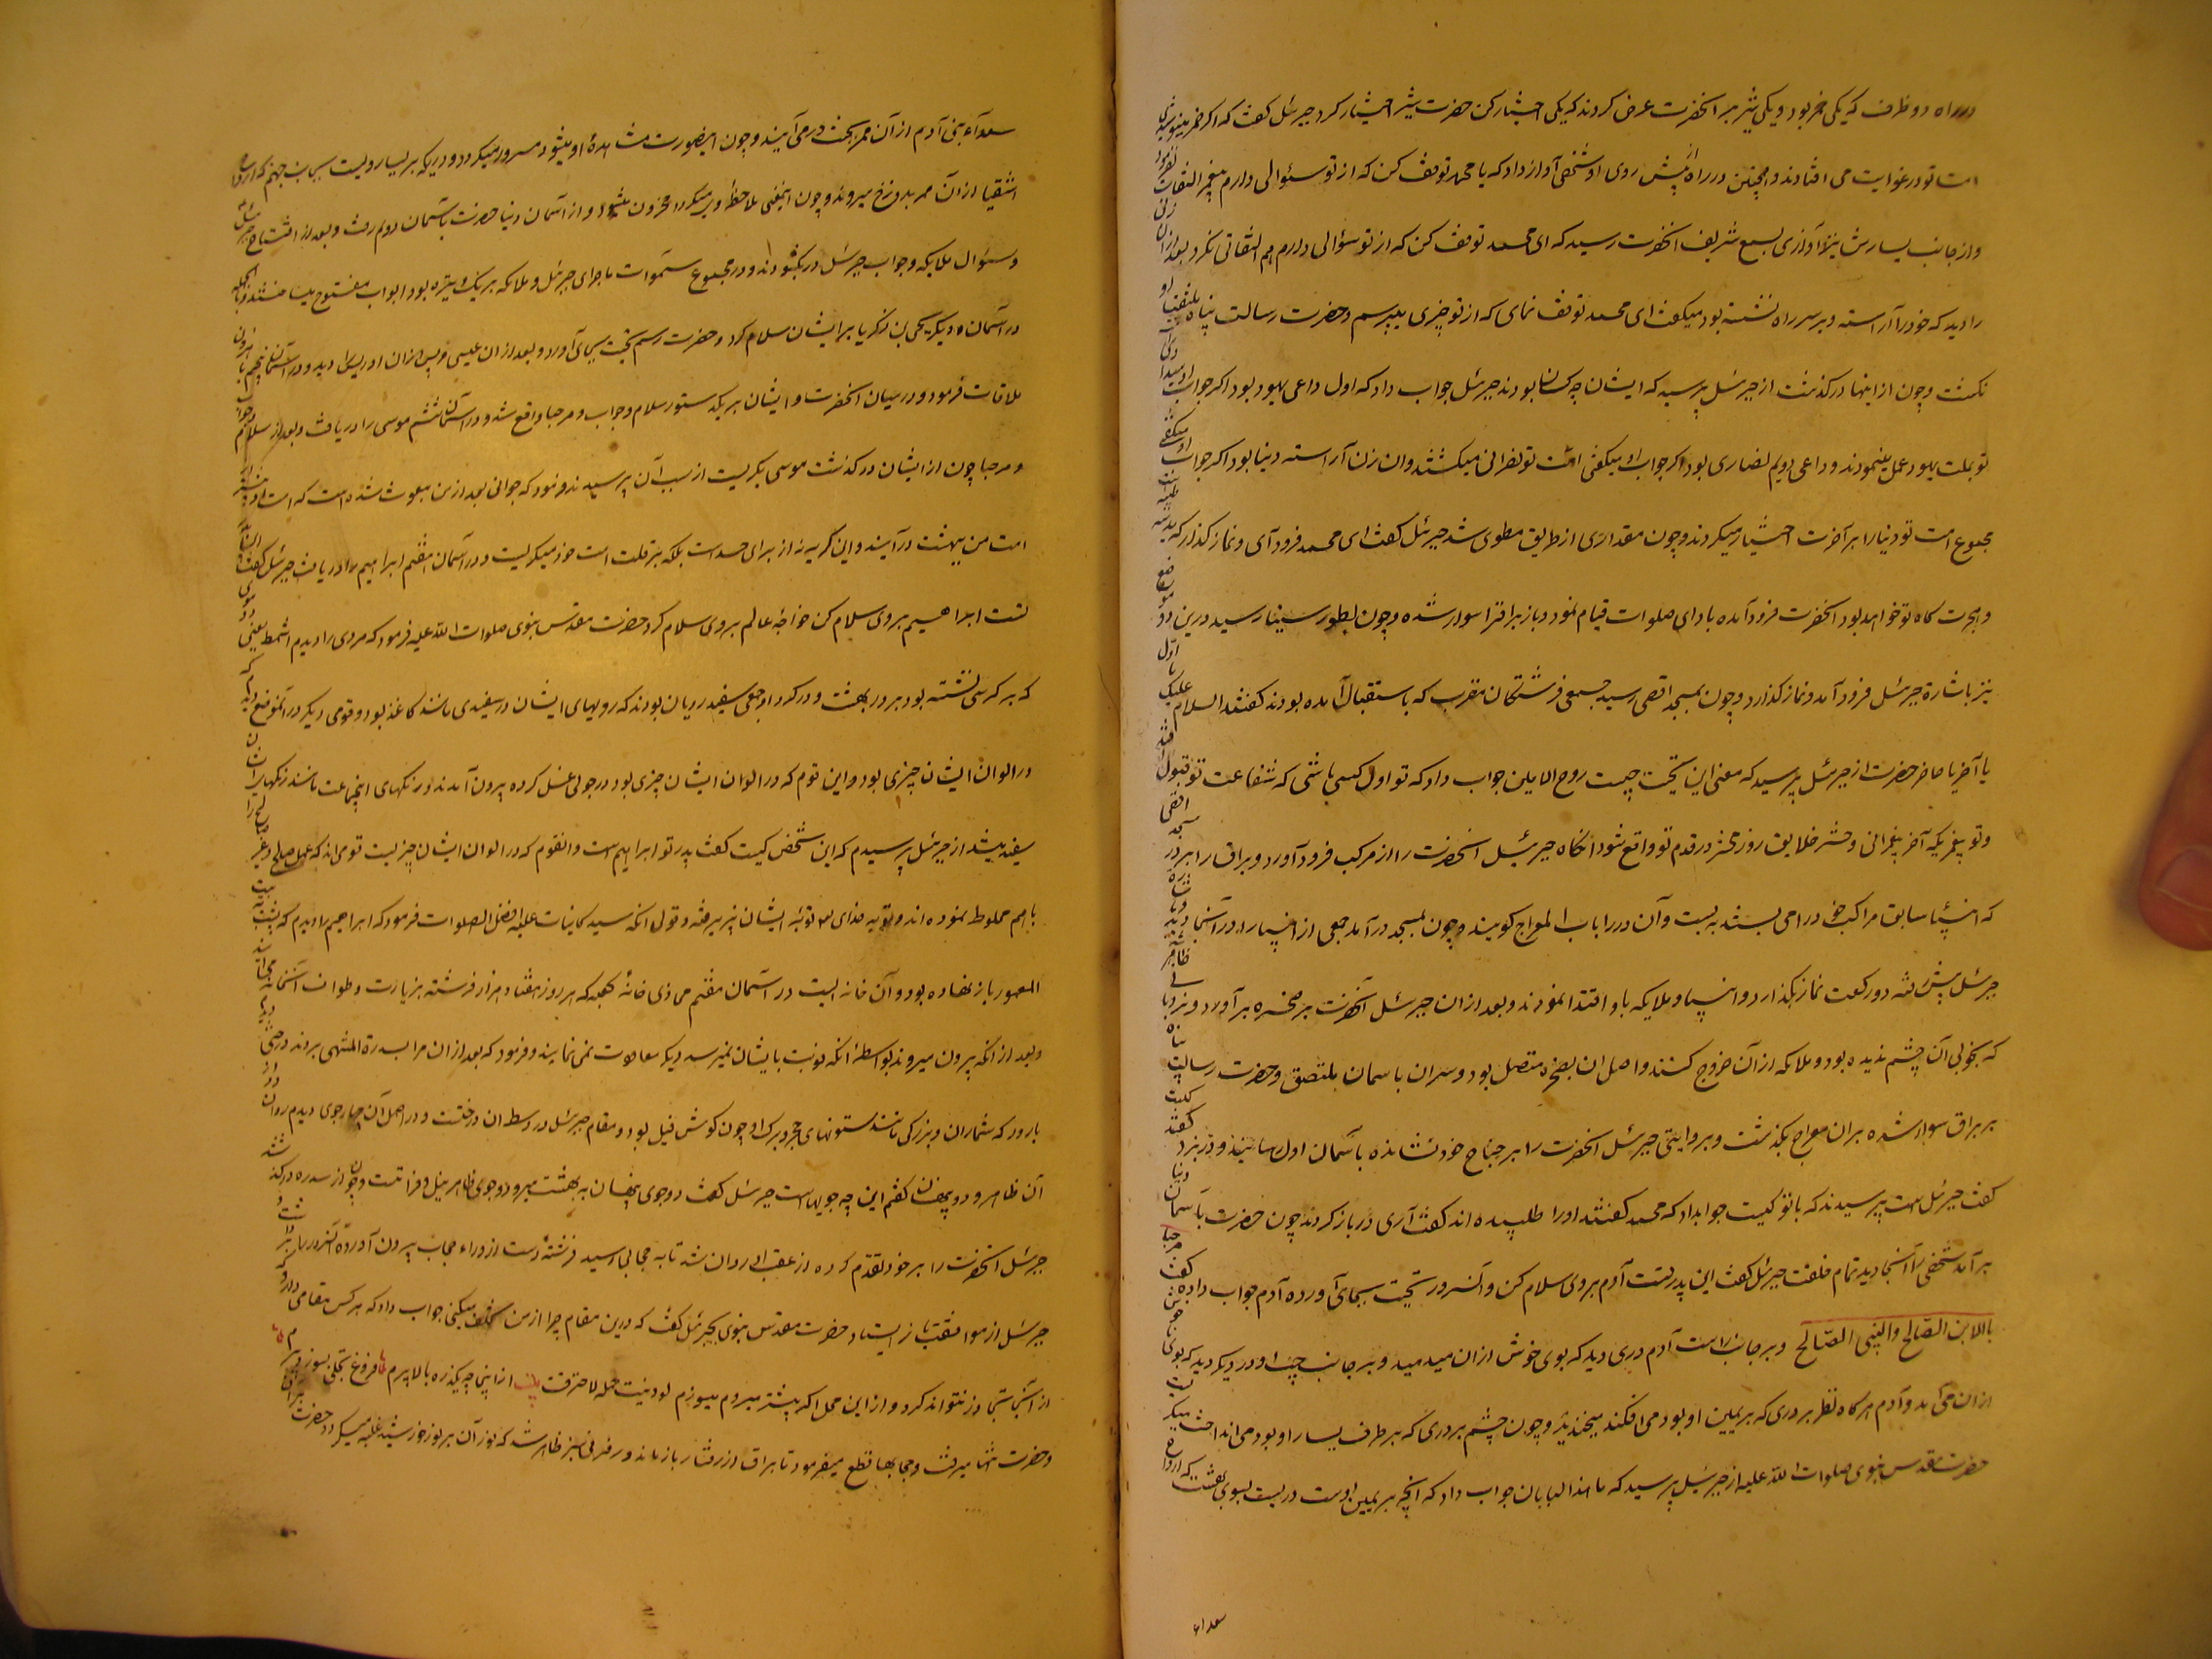 در راه دو ظرف که یکی خمر بود و یکی شیر بر آنحضرت عرض کردند که یکی اختیار کن حضرت شیر اختیار کرد جبرئیل گفت که اگر خمر
امت تو در غوایت می افتادند و همچنین در راه از پیش روی او شخصی آواز داد که یا محمد توقف کن که از تو سئوالی دارم پیغمبر التفات
و از جانب یسارش نیز آوازی بسمع شریف آنحضرت رسید که ای محمد توقف کن که از تو سؤالی دارم هم التفاتی نکرد بعد ازان زنی
را دید که خود را آراسته و بر سر راه نشسته بود میگفت ای محمد توقف نمای که از تو چیزی بپرسم و حضرت رسالت پناه ملتفت او
نگشت و چون از اینها درگذشت از جبرئیل پرسید که ایشان چه کسان بودند جبرئیل جواب داد که اول داعی یهود بود اگر جواب
تو بملت یهود عمل مینمودند و داعی دویم نصاری بود اگر جواب او میگفتی امت تو نصرانی میگشتند وان زن آراسته دنیا بود اگر جواب او میگفتی
مجموع امت تو دنیا را بر آخرت اختیار میکردند و چون مقداری از طریق مطوی شد جبرئیل گفت ای محمد فرود آی و نماز گذار که
و هجرت گاه تو خواهد بود آنحضرت فرود آمده بادای صلوات قیام نمود و باز براق را سوار شده و چون بطور سینا رسید درین موضع
نیز باشارة جبرئیل فرود آمد و نماز گذارد و چون بمسجد اقصی رسید جمعی فرشتگان مقرب که باستقبال آمده بودند گفتند السلام علیک یا اول
یا آخر یا حاضر حضرت از جبرئیل پرسید که معنی این تحیت چیست روح الامین جواب داد که تو اول کسی باشی که شفاعت تو قبول افتد
و تو پیغمبر آخر و حشر خلایق روز محشر در قدم تو واقع شود انگاه جبرئیل آنحضرت را از مرکب فرود آورد و براق را بر در مسجد اقصی
که انبیاء سابق مراکب خود را می بستند به بست و آن در را باب المعراج گویند و چون بمسجد درآمد جمعی از انبیا را در آنجا دید
جبرئیل پیش رفته دو رکعت نماز بگذارد و انبیا و ملایکه باو اقتدا نمودند و بعد ازان جبرئیل آنحضرت بر صخره برآورد و نردبانی ظاهر
که بخوبی آن چشم ندیده بود و ملایکه از آن خروج کنند و اصل ان بصخره متصل بود و سر ان باسمان ملتصق و حضرت رسالت پناه
بر براق سوار شده بران معراج بگذشت و بروایتی جبرئیل آنحضرت را بر جناح خود نشانده باسمان اول رسانید و در بزد گفتند کیست
گفت جبرئیل است پرسیدند که با تو کیست جوابداد که محمد گفتند او را طلبیده اند گفت آری در باز کردند چون حضرت بآسمان دنیا
برآمد شخصی را آنجا دید تمام خلقت جبرئیل گفت این پدر تست آدم بر وی سلام کن و آنسرور تحیت بجای آورده آدم جواب داده گفت مرحبا
بالابن الصالح والنبی الصالح و بر جانب راست آدم دری دید که بوی خوش ازان میدمید و بر جانب چپ او در دیگر دید که بوی
ازان می آمد و آدم هرگاه نظر بر دری که بر یمین او بود می افکند میخندید و چون چشم بر دری که بر طرف یسار او بود می انداخت
حضرت مقدس نبوی صلوات الله علیه از جبرئیل پرسید که ما هذا البابان جواب داد که آنچه بر یمین اوست دریست بسوی بهشت که ارواح
سعداء
سعداء بنی آدم از آن ممر بجنت درمی آیند و چون اینصورت مشاهدهٔ او میشود مسرور میگردد و دریکه بر یسار ویست بجانب جهنم که ارواح
اشقیا از آن ممر بدوزخ میروند و چون اینمعنی ملاحظهٔ وی میگردد محزون میشود و از آسمان دنیا حضرت بآسمان دویم رفت و بعد از افتتاح جبرئیل
و سئوال ملایکه و جواب جبرئیل در بگشودند و در مجموع سموات ماجرای جبرئیل و ملائکه بر یک وتیره بود ابواب مفتوح میساختند و بالجمله
در آسمان دیگر یحیی بن زکریا بر ایشان سلام کرد و حضرت رسم تحیت بجای آورد و بعد ازان عیسی و پس ازان ادریس را دید و در آسمان پنجم با هارون
ملاقات فرمود و در میان آنحضرت و ایشان بر یک دستور سلام و جواب و مرحبا واقع شد و در آسمان ششم موسی را دریافت و بعد از سلام و جواب
و مرحبا چون از ایشان درگذشت موسی بگریست از سبب آن پرسیدند فرمود که جوانی بعد از من مبعوث شده است که امت او بیشتر از
امت من ببهشت درآیند و این گریه نه از برای حسد است بلکه بر قلت امت خود میگریست و در آسمان هفتم ابراهیم را دریافت جبرئیل گفت این پدر
تست ابراهیم بر وی سلام کن خواجه عالم بر وی سلام کرد حضرت مقدس نبوی صلوات الله علیه فرمود که مردی را دیدم اشمط یعنی
که بر کرسی نشسته بود بر در بهشت و در گرد او جمعی سفید رویان بودند که رویهای ایشان در سفیدی مانند کاغذ بود و قومی دیگر در آنموضع دیدم که
در الوان ایشان چیزی بود و این قوم که در الوان ایشان چیزی بود در جوئی غسل کرده بیرون آمدند و رنگهای اینجماعت مانند رنگهای
سفید شد از جبرئیل پرسیدم که این شخص کیست گفت پدر تو ابراهیم است و انقوم که در الوان ایشان چیزیست قومی اند که عمل صالح و غیر صالح را
باهم مخلوط نموده اند و توبه خدای توبهٔ ایشان پذیرفته و قول آنکه سید کاینات علیه افضل الصلوات فرمود که ابراهیم را دیدم که پشت به بیت
المعمور باز نهاده بود و آن خانه ایست در آسمان هفتم محاذی خانهٔ کعبه که هر روز هفتاد هزار فرشته بزیارت و طواف آنخانه می آیند
و بعد از آنکه بیرون میروند بواسطهٔ آنکه نوبت بایشان نمیرسد دیگر معاودت نمی نمایند و فرمود که بعد ازان مرا بسدرة المنتهی بردند درختی دیدم
بارور که ثمار ان در بزرگی مانند ستونهای و برگ او چون گوش فیل بود و مقام جبرئیل در وسط ان درختست و در اصل آن چهار جوی دیدم روان دو از
آن ظاهر و دو پنهان گفتم این چه جویهاست جبرئیل گفت دو جوی پنهان به بهشت میرود و دو جوی ظاهر نیل و فراتست و چون از سدره درگذشتند
جبرئیل آنحضرت را بر خود تقدیم کرده از عقب او روان شد تا به حجابی رسید فرشتهٔ دست از وراء حجاب بیرون آورده آنسرور را برداشت و
جبرئیل از موافقت باز ایستاد حضرت مقدس نبوی بجبرئیل گفت که درین مقام چرا از من تخلف میکنی جواب داد که هر کس مقامی دارد که
از آنجا تجاوز نتواند کرد و از این محل اگر پیشتر میروم میسوزم لو دنیت انملة لاحترقت بیت از اینجا چه یکذره بالا پرم فروغ تجلی بسوزد پرم
و حضرت تنها میرفت و حجابها قطع میفرمود تا براق از رفتار بازماند و رفرفی سبز ظاهر شد که نور آن بر نور خورشید غلبه میکرد و حضرت بران